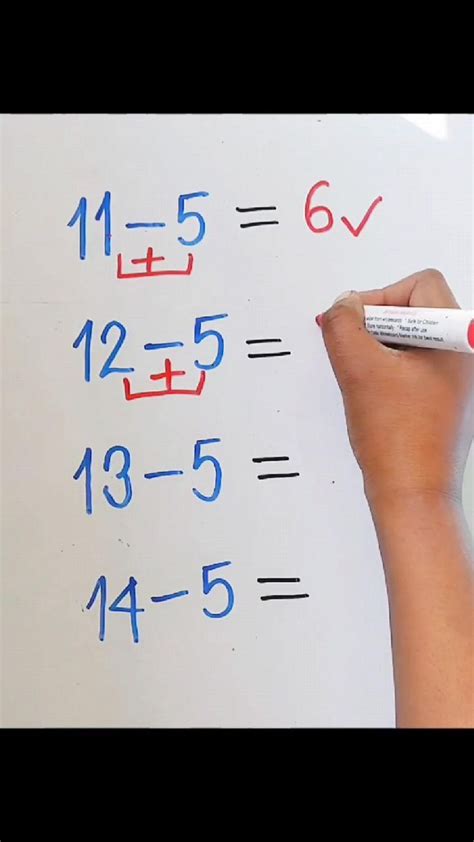 11-5 = 6✓
+
12-5 =
+
13-5 =
14-5 =